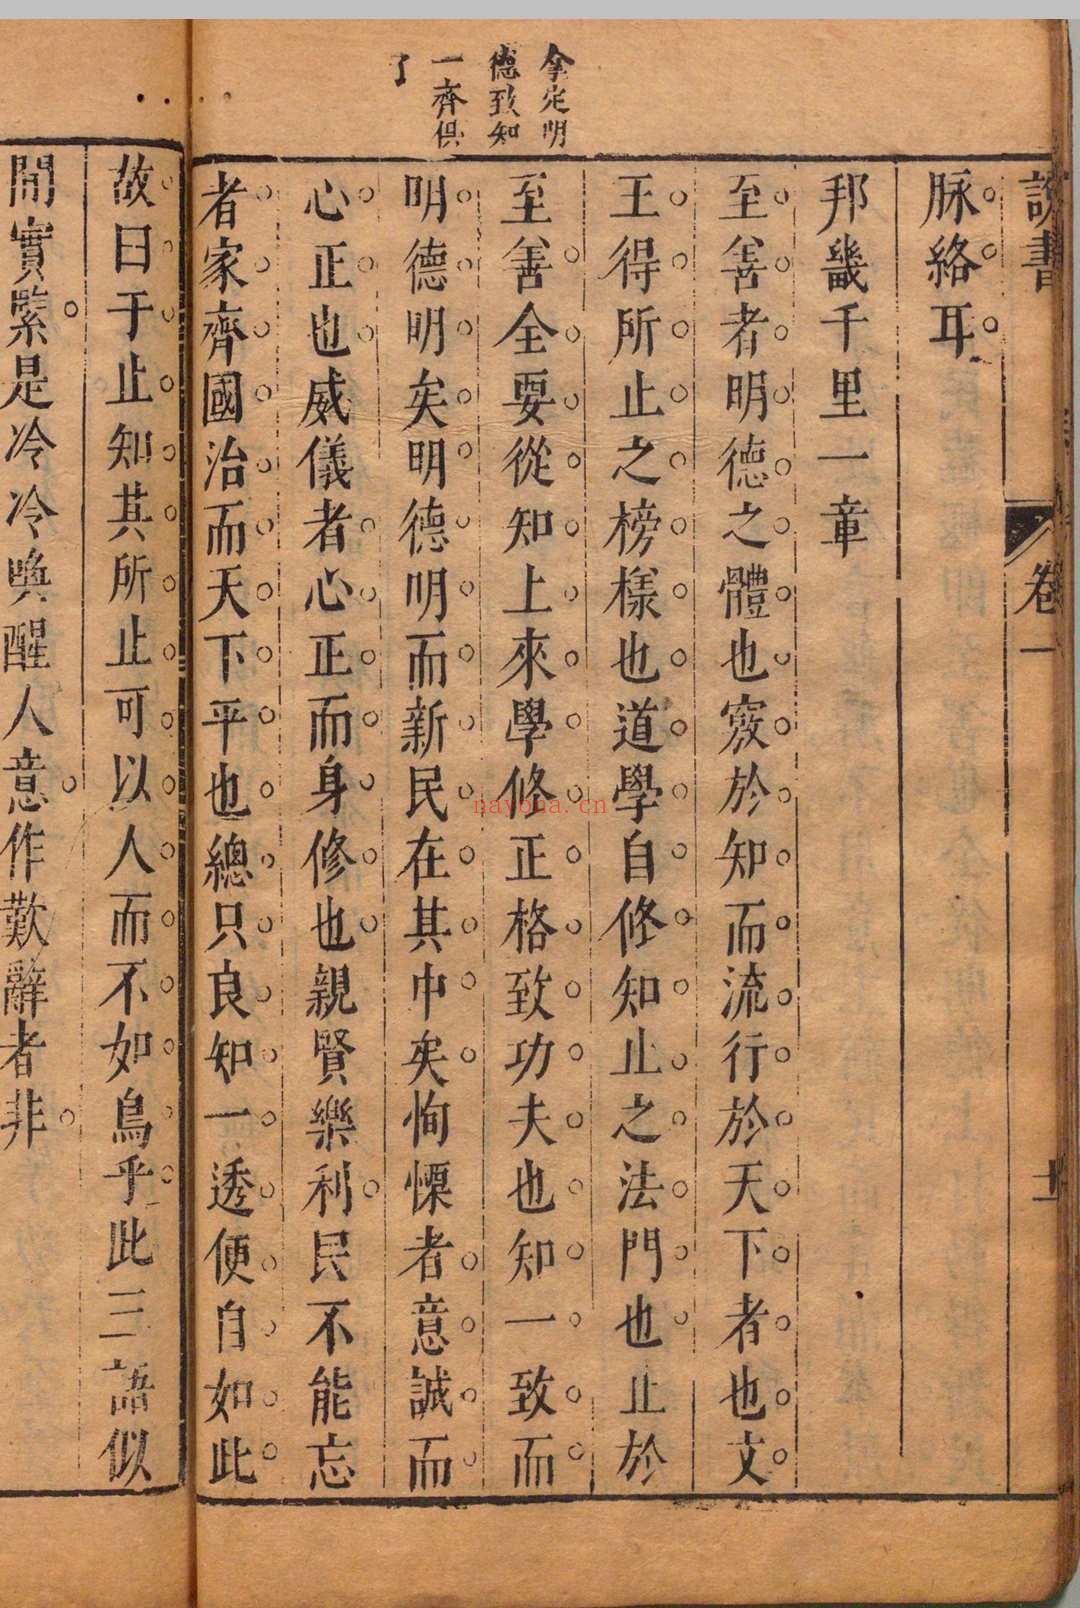 說書
卷一
脉絡耳
邦畿千里一章
至善者明德之體也竅於知而流行於天下者也文
王得所止之榜樣也道學自修知止之法門也止於
至善全要從知上來學修正格致功夫也知一致而
明德明矣明德明而新民在其中矣恂慄者意誠而
心正也威儀者心正而身修也親賢樂利民不能忘
者家齊國治而天下平也總只良知一透便自如此
拿定明
德致知
一齊俱
了
故曰于止知其所止可以人而不如鳥乎此三語似
間實緊是冷冷喚醒人意作歎辭者非
nayona.cn